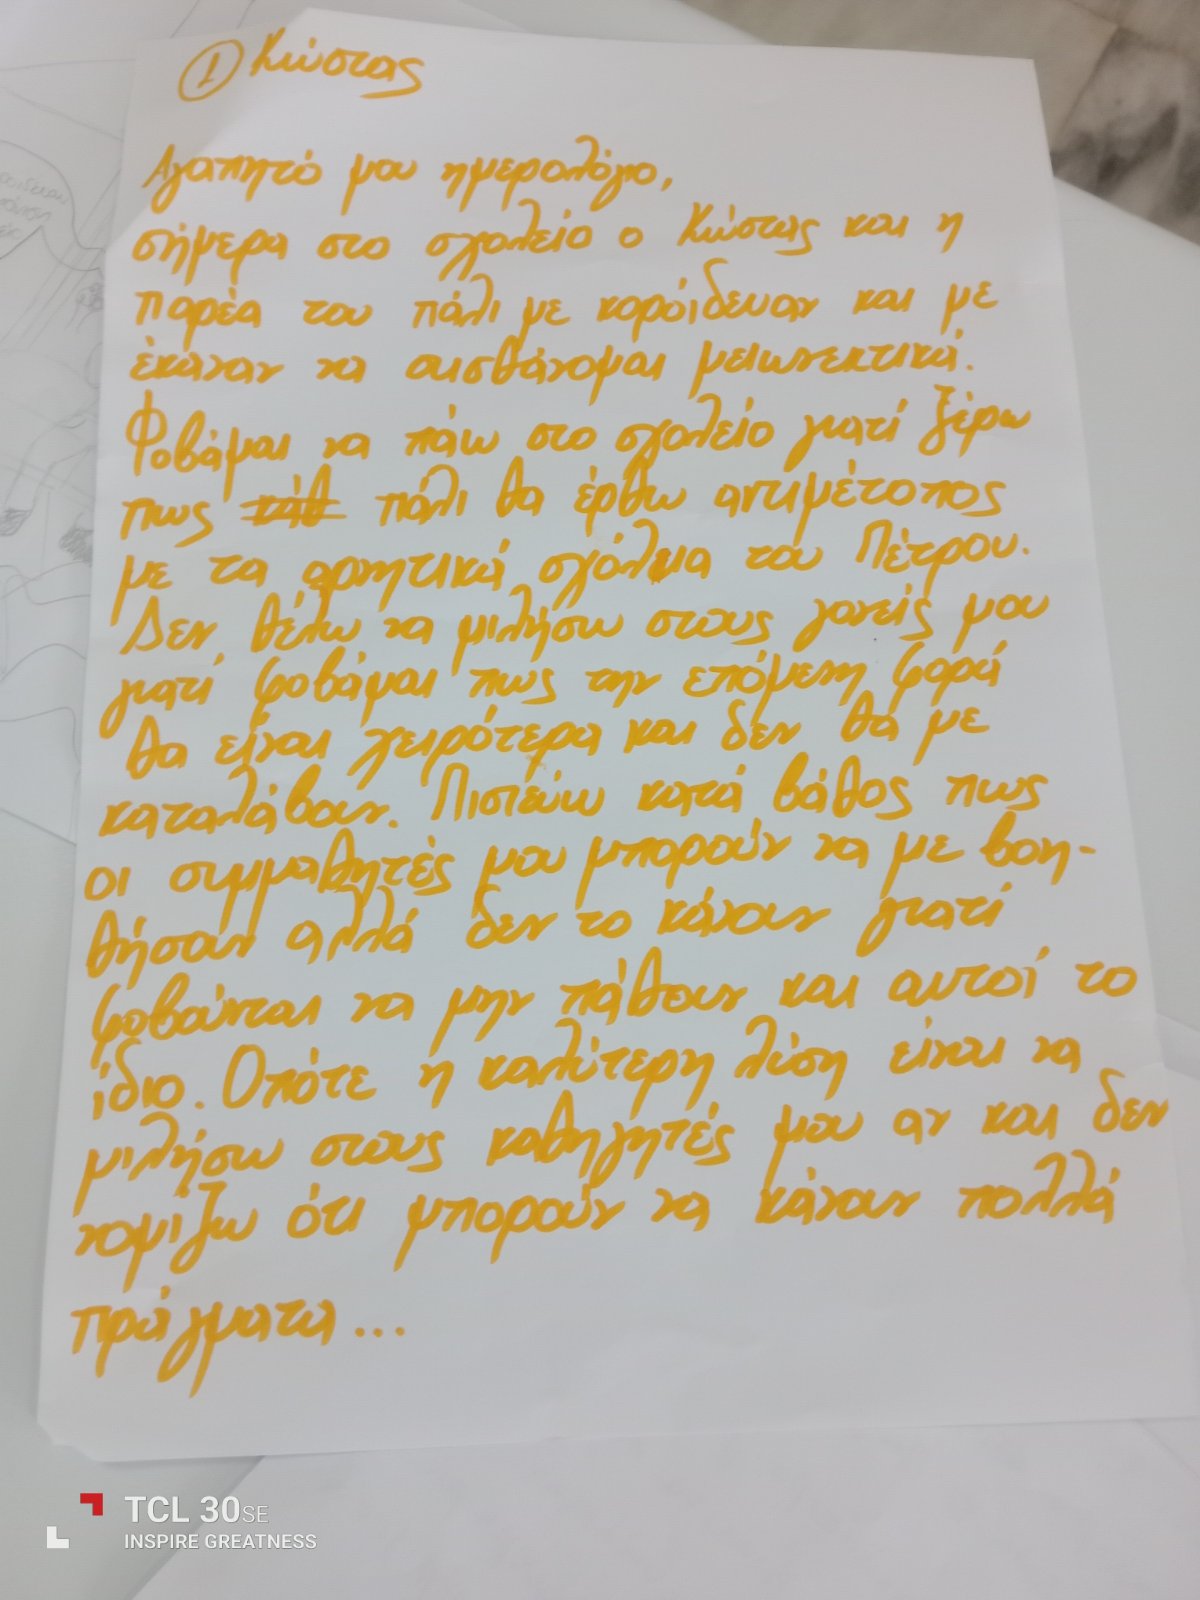 ① Κώστας
Αγαπητό μου ημερολόγιο,
σήμερα στο σχολείο ο Κώστας και η
παρέα του πάλι με κορόιδευαν και με
έκαναν να αισθάνομαι μειωνεκτικά.
Φοβάμαι να πάω στο σχολείο γιατί ξέρω
πως πάλι θα έρθω αντιμέτοπος
με τα αρνητικά σχόλεια του Πέτρου.
Δεν θέλω να μιλήσω στους γονείς μου
γιατί φοβάμαι πως την επόμενη φορά
θα είναι χειρότερα και δεν θα με
καταλάβουν. Πιστεύω κατά βάθος πως
οι συμμαθητές μου μπορούν να με βοη-
θήσουν αλλά δεν το κάνουν γιατί
φοβούνται να μην πάθουν και αυτοί το
ίδιο. Οπότε η καλύτερη λύση είναι να
μιλήσω στους καθηγητές μου αν και δεν
νομίζω ότι μπορούν να κάνουν πολλά
πράγματα...
TCL 30 SE
INSPIRE GREATNESS